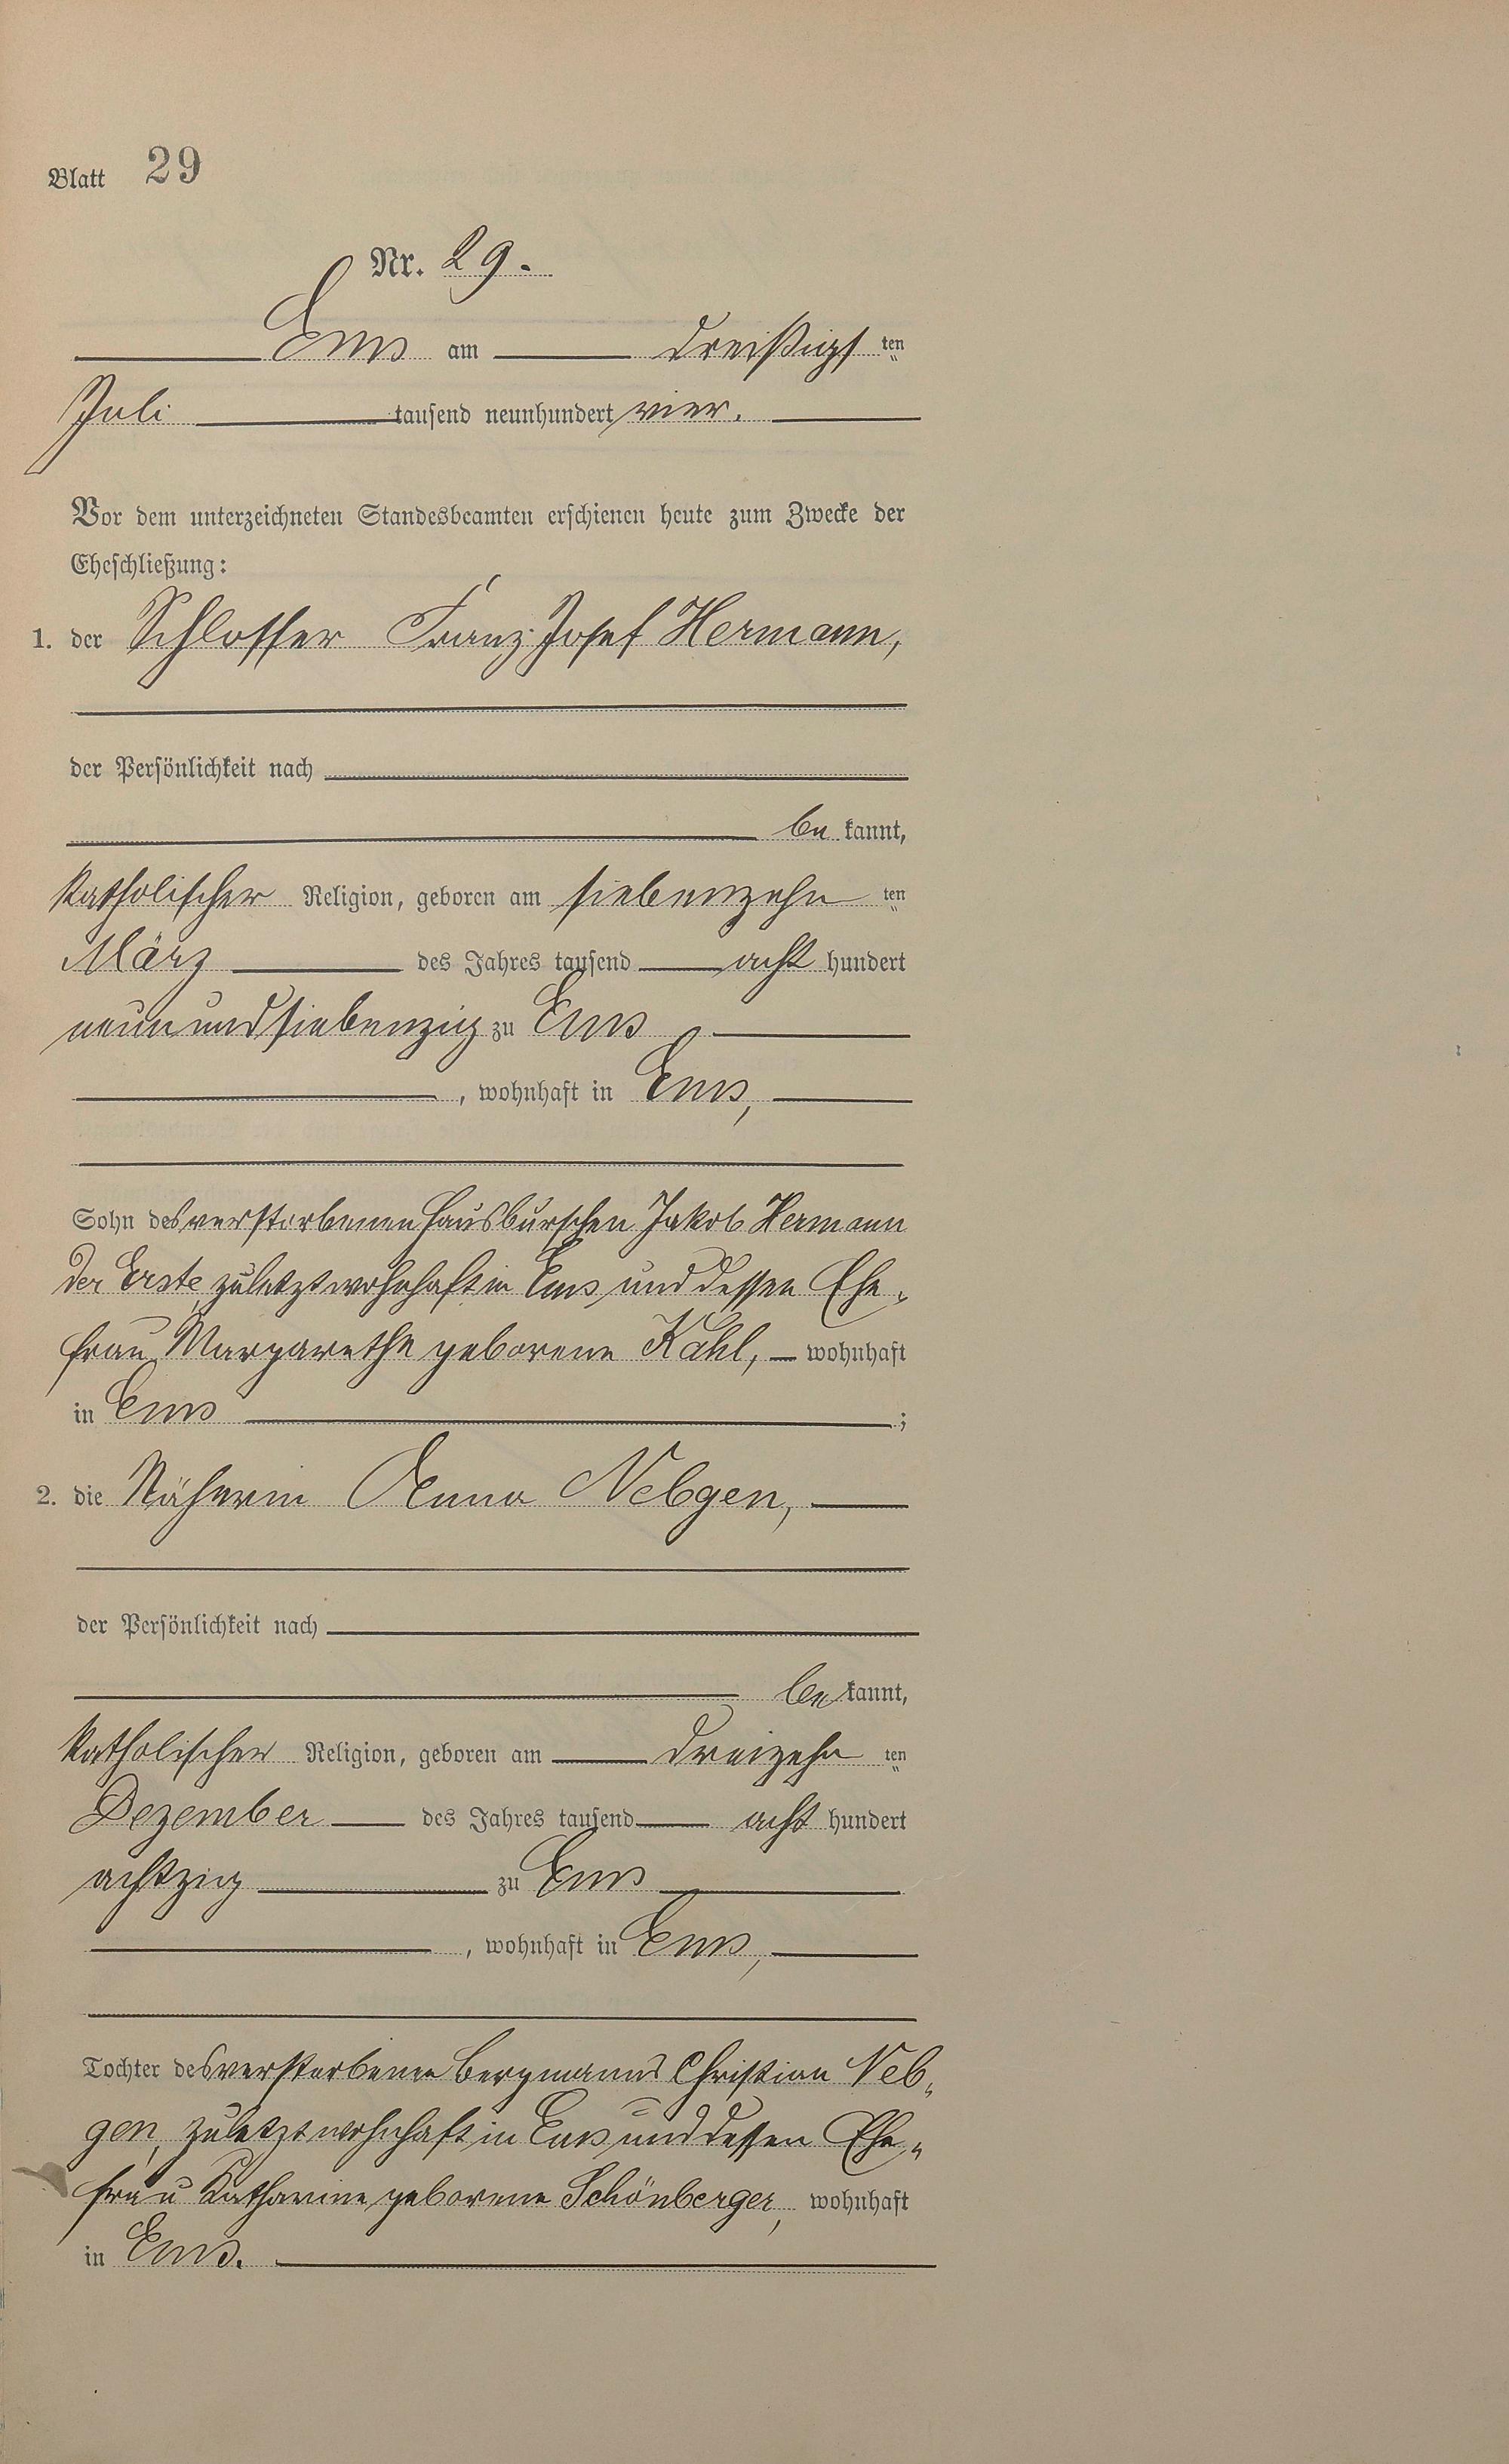 Blatt 29
Nr. 29.
Ems am dreißigsten
Juli tausend neunhundert vier.
Vor dem unterzeichneten Standesbeamten erschienen heute zum Zwecke der
Eheschließung:
1. der Schlosser Franz Josef Hermann,
der Persönlichkeit nach
be kannt,
katholischer Religion, geboren am siebenzehn ten
März des Jahres tausend acht hundert
neunundsiebenzig zu Ems
, wohnhaft in Ems,
Sohn des verstorbenen Hausburschen Jakob Hermann
der Erste, zuletzt wohnhaft in Ems und dessen Ehe-
frau Margarethe geborene Kahl, wohnhaft
in Ems ;
2. die Näherin Anna Nebgen,
der Persönlichkeit nach
be kannt,
katholischer Religion, geboren am dreizehn ten
Dezember des Jahres tausend acht hundert
achtzig zu Ems
, wohnhaft in Ems,
Tochter des verstorbenen Bergmanns Christian Neb-
gen, zuletzt wohnhaft in Ems und dessen Ehe-
frau Katharine geborene Schönberger, wohnhaft
in Ems.